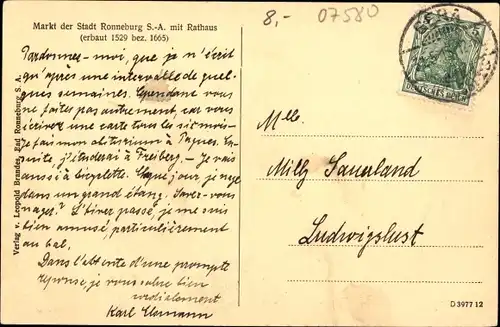 Markt der Stadt Ronneburg S.-A. mit Rathaus
(erbaut 1529 bez. 1665)
8,-
07580
GERA
DEUTSCHES
Pardonnez-moi, que je n'écrit
qu'après une intervalle de quel-
ques semaines. Cependant vous
ne faites pas autrement, car vous
écrivez une carte tous les six mois-
Je fais mon abiturium à Pâques. En-
suite, j'étuderai à Freiberg - Je vais
aussi à bicyclette. Chaque jour je nage
dans un grand étang. Savez-vous
nager? L'hiver passé, je me suis
bien amusé, particulièrement
au bal.
Dans l'attente d'une prompte
réponse, je vous salue bien
cordialement
Karl
Mlle.
Milly Sauerland
Ludwigslust
Verlag v. Leopold Brandes, Bad Ronneburg S. A.
D 3977 12